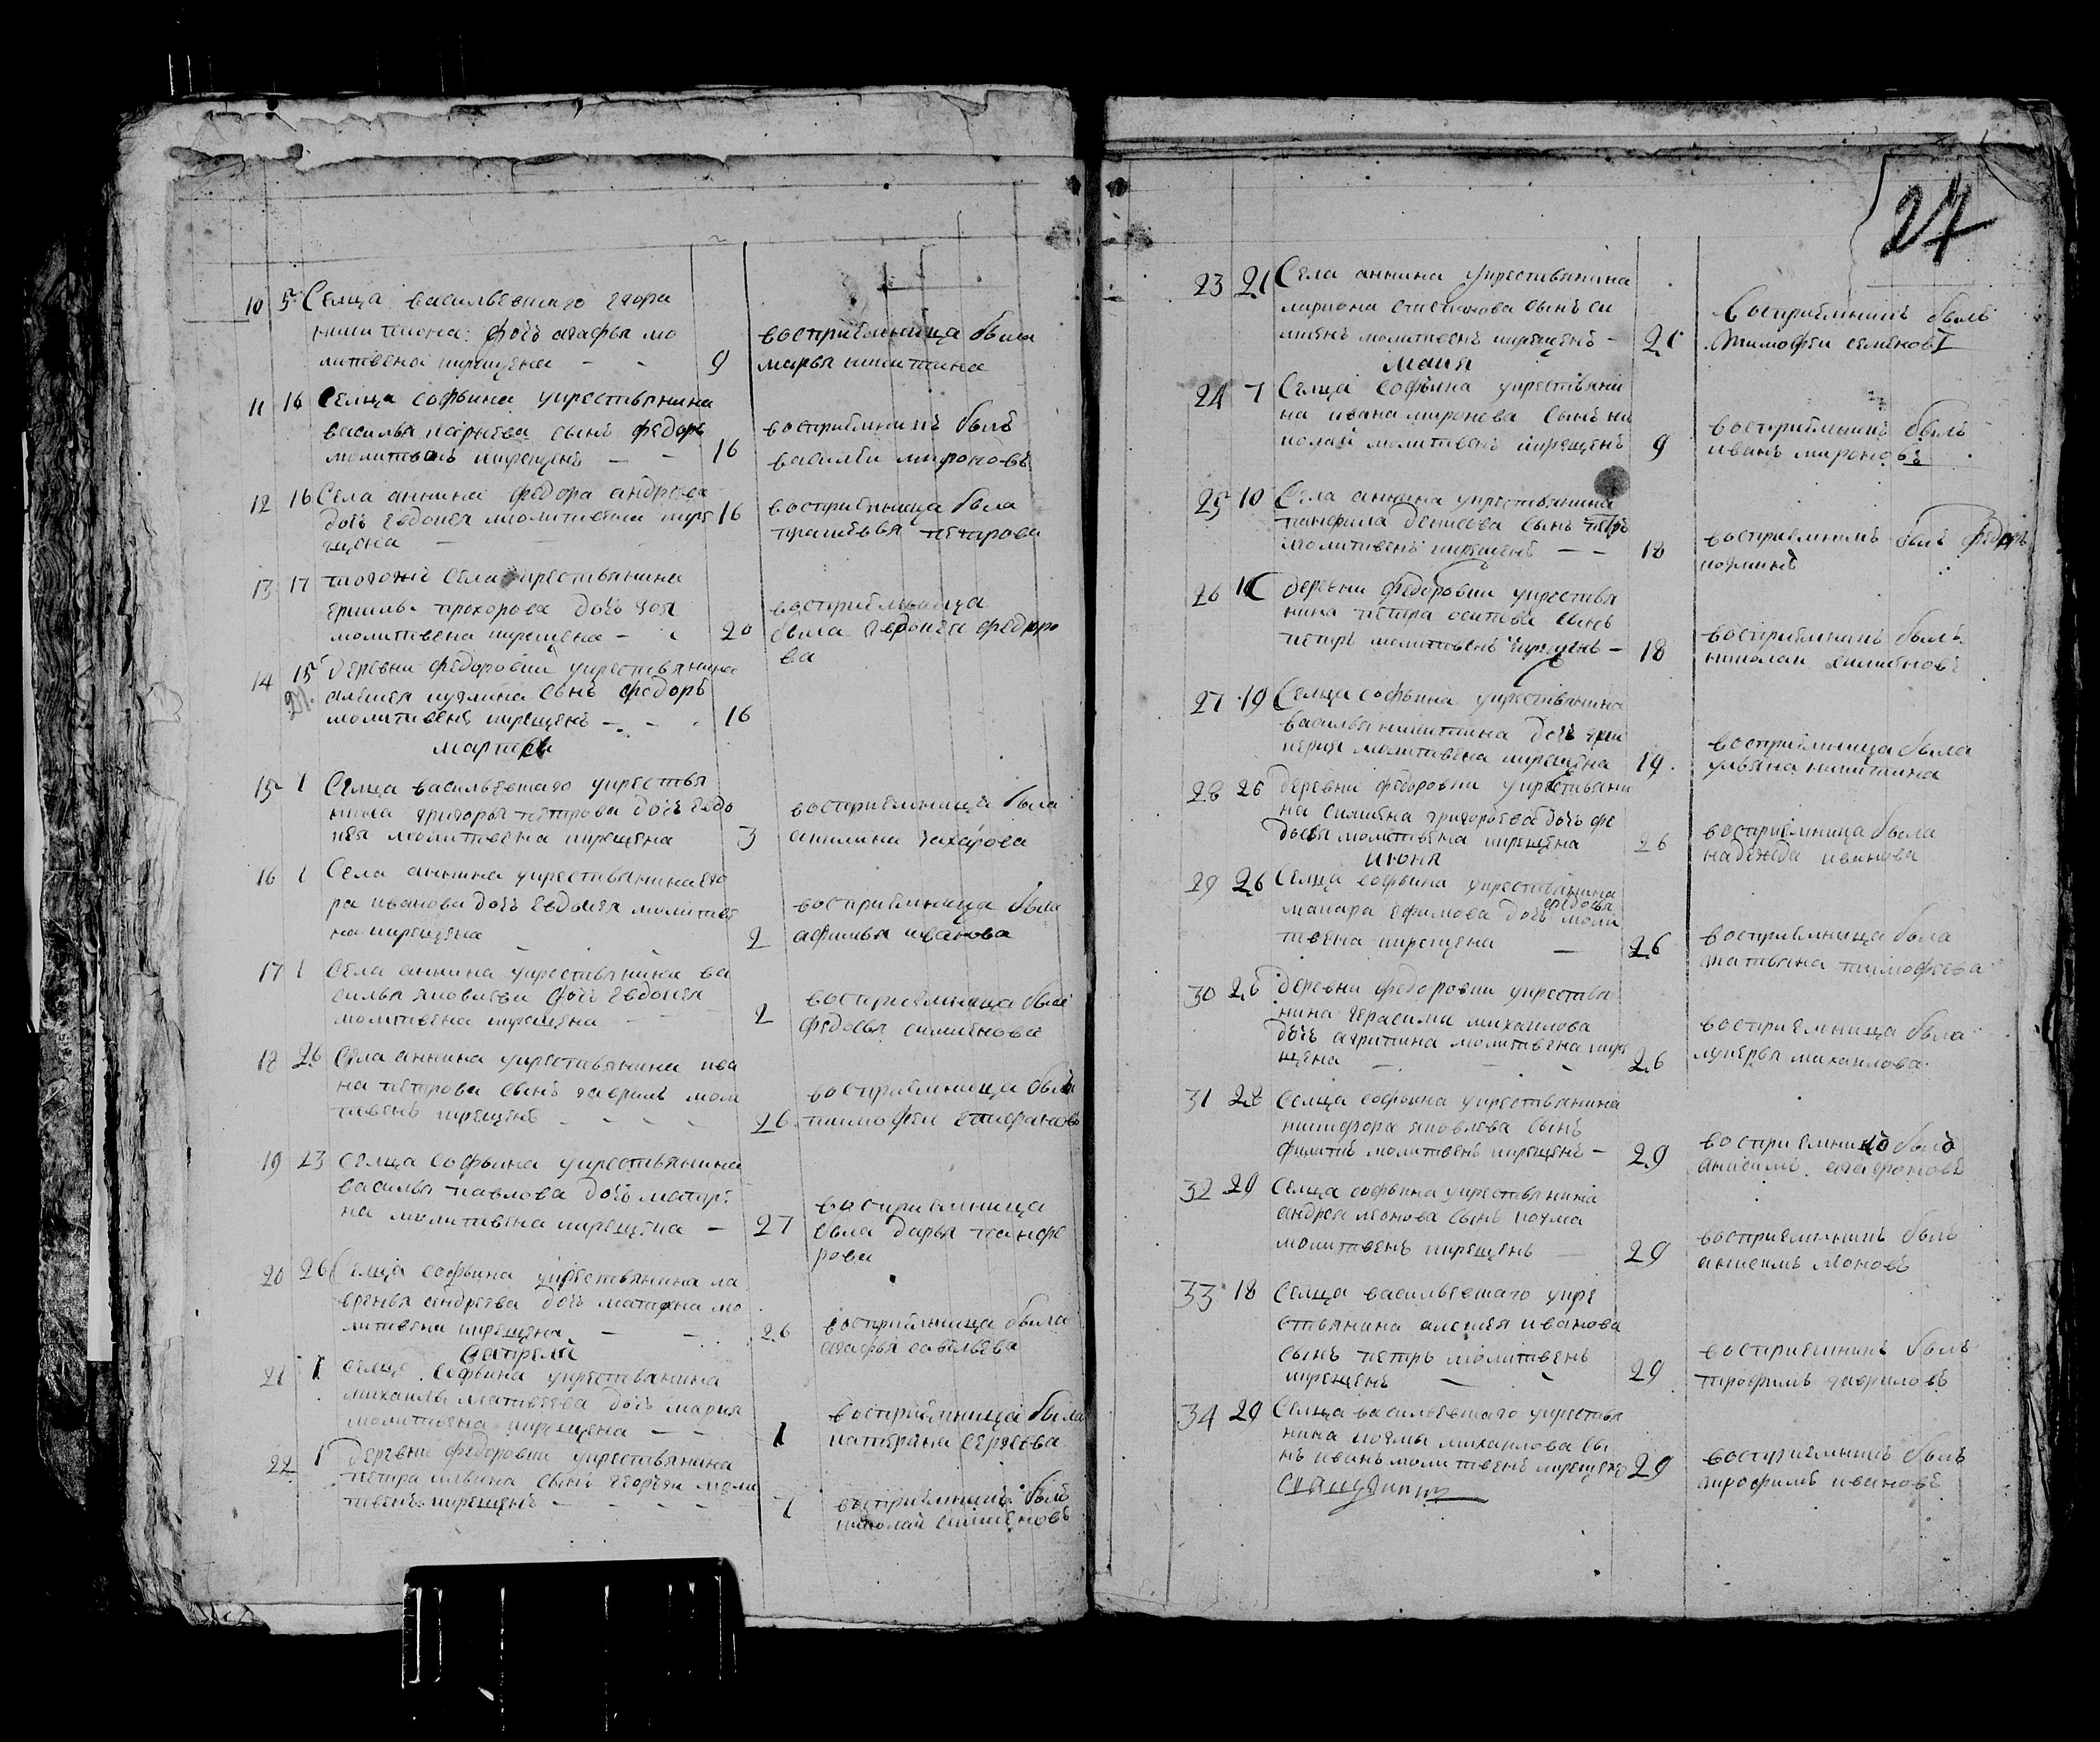 27
10 5 Селца васильевшаго егора
никитина дочь агафья мо
литвена икрещена 9
восприемница была
марья никитина
11 16 Селца софьина укрестьянина
василья карнева сынъ федоръ
молитвенъ икрещенъ 16
восприемникъ былъ
василеи мироновъ
12 16 Села аннина федора андреева
дочь евдокея имолитвена икре
щена 16
восприемница была
прасковья петрова
13 17 тогожъ села укрестьянина
ермила прохорова дочь зоя
молитвена икрещена 20
восприемница
была евдокея федоро
ва
14 15 деревни федоровки укрестьянина
алексея кузмина сынъ федоръ
молитвенъ икрещенъ 16
мартъ
15 1 Селца васильевшаго укрестья
нина григорья петрова дочь евдо
кея молитвена икрещена 3
восприемница была
акилина захарова
16 1 Села аннина укрестьянина его
ра иванова дочь евдокея молитве
на икрещена 2
восприемница была
афимья иванова
17 1 Села аннина укрестьянина ва
силья яковлева дочь евдокея
молитвена икрещена 2
восприемница была
федосья симионова
18 26 Села аннина укрестьянина ива
на петрова сынъ гаврилъ моли
твенъ икрещенъ 26
восприемница былъ
тимофеи епифановъ
19 23 Селца софьина укрестьянина
василья павлова дочь матре
на молитвена икрещена 27
восприемница
была дарья панфе
рова
20 26 Селца софьина укрестьянина ла
вренья андреева дочь матрена мо
литвена икрещена 26
восприемница была
агафья савельева
апреля
21 1 Селца софьина укрестьянина
михаилы матвеева дочь мария
молитвена икрещена 1
восприемница была
катерина сергеева
22 1 Деревни федоровки укрестьянина
петра ильина сынъ георгеи моли
твенъ икрещенъ 7
восприемникъ былъ
николаи симионовъ
23 21 Села аннина укрестьянина
лариона степанова сынъ си
мионъ молитвенъ икрещенъ
Восприемникъ былъ
тимофеи семеновъ
маия
24 7 Селца софьина укрестьяни
на ивана миронова сынъ ни
колаи молитвенъ икрещенъ 9
восприемникъ былъ
иванъ мироновъ
25 10 Села аннина укрестьянина
панфила денисова сынъ петръ
молитвенъ икрещенъ 18
восприемникъ былъ федоръ
козминъ
26 деревни федоровки укрестья
нина петра осипова сынъ
петръ молитвенъ икрещенъ 18
восприемникъ былъ
николаи симионовъ
27 19 Селца софьина укрестьянина
василья никитина дочь
молитвена икрещена 19
восприемница была
ульяна никитина
28 26 деревни федоровки укрестьяни
на симиона григорьева дочь фе
досья молитвена икрещена 26
восприемница была
надежда иванова
июня
29 26 Селца софьина укрестьянина
макара ефимова дочь федосья моли
твена икрещена 26
восприемница была
татьяна тимофеева
30 26 деревни федоровки укрестья
нина герасима михаилова
дочь агрипина молитвена икре
щена 26
восприемница была
лукерья михаилова
31 28 Селца софьина укрестьянина
никифора яковлева сынъ
филипъ молитвенъ икрещенъ 29
восприемникъ былъ
анисимъ агафоновъ
32 29 Селца софьина укрестьянина
андрея леонова сынъ козма
молитвенъ икрещенъ 29
восприемникъ былъ
анисимъ леоновъ
33 18 Селца васильевшаго укре
стьянина алексея иванова
сынъ петръ молитвенъ
икрещенъ 29
восприемникъ былъ
трофимъ гавриловъ
34 29 Селца васильевшаго укрестья
нина козмы михаилова сы
нъ иванъ молитвенъ икрещенъ 29
восприемникъ былъ
трофимъ ивановъ